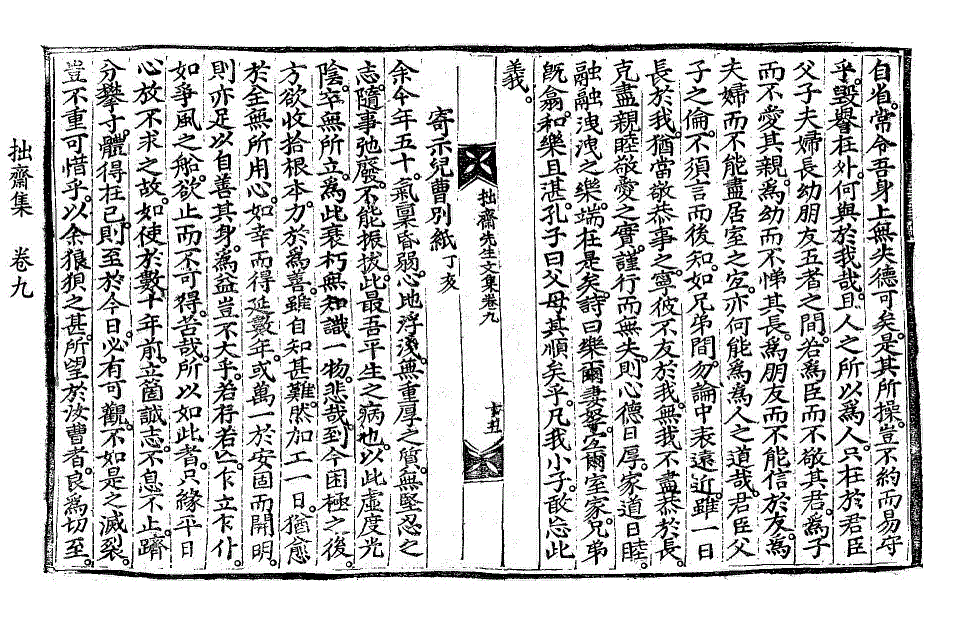 自省。常令吾身上無失德可矣。是其所操。豈不約而易守
乎。毀譽在外。何與於我哉。且人之所以爲人。只在於君臣
父子夫婦長幼朋友五者之間。若爲臣而不敬其君。爲子
而不愛其親。爲幼而不悌其長。爲朋友而不能信於友。爲
夫婦而不能盡居室之宜。亦何能爲爲人之道哉。君臣父
子之倫。不須言而後知。如兄弟間。勿論中表遠近。雖一日
長於我。猶當敬恭事之。寧彼不友於我。無我不盡恭於長。
克盡親睦敬愛之實。謹行而無失。則心德日厚。家道日睦。
融融洩洩之樂。端在是矣。詩曰樂爾妻孥。宜爾室家。兄弟
旣翕。和樂且湛。孔子曰父母其順矣乎。凡我小子。敢忘此
義。
拙齋先生文集卷九
寄示兒曹別紙 丁亥
余今年五十。氣稟昏弱。心地浮淺。無重厚之質。無堅忍之
志。隨事弛廢。不能振拔。此最吾平生之病也。以此虛度光
陰。卒無所立。爲此衰朽無知識一物。悲哉。到今困極之後。
方欲收拾根本。力於爲善。雖自知甚難。然加工一日。猶愈
於全無所用心。如幸而得延數年。或萬一於安固而開明。
則亦足以自善其身。爲益豈不大乎。若存若亡。乍立乍仆。
如爭風之船。欲止而不可得。苦哉。所以如此者。只緣平日
心放不求之故。如使於數十年前。立箇誠志。不息不止。躋
分攀寸。體得在己。則至於今日。必有可觀。不如是之滅裂。
豈不重可惜乎。以余狼狽之甚。所望於汝曹者。良爲切至。
拙齋集 卷九